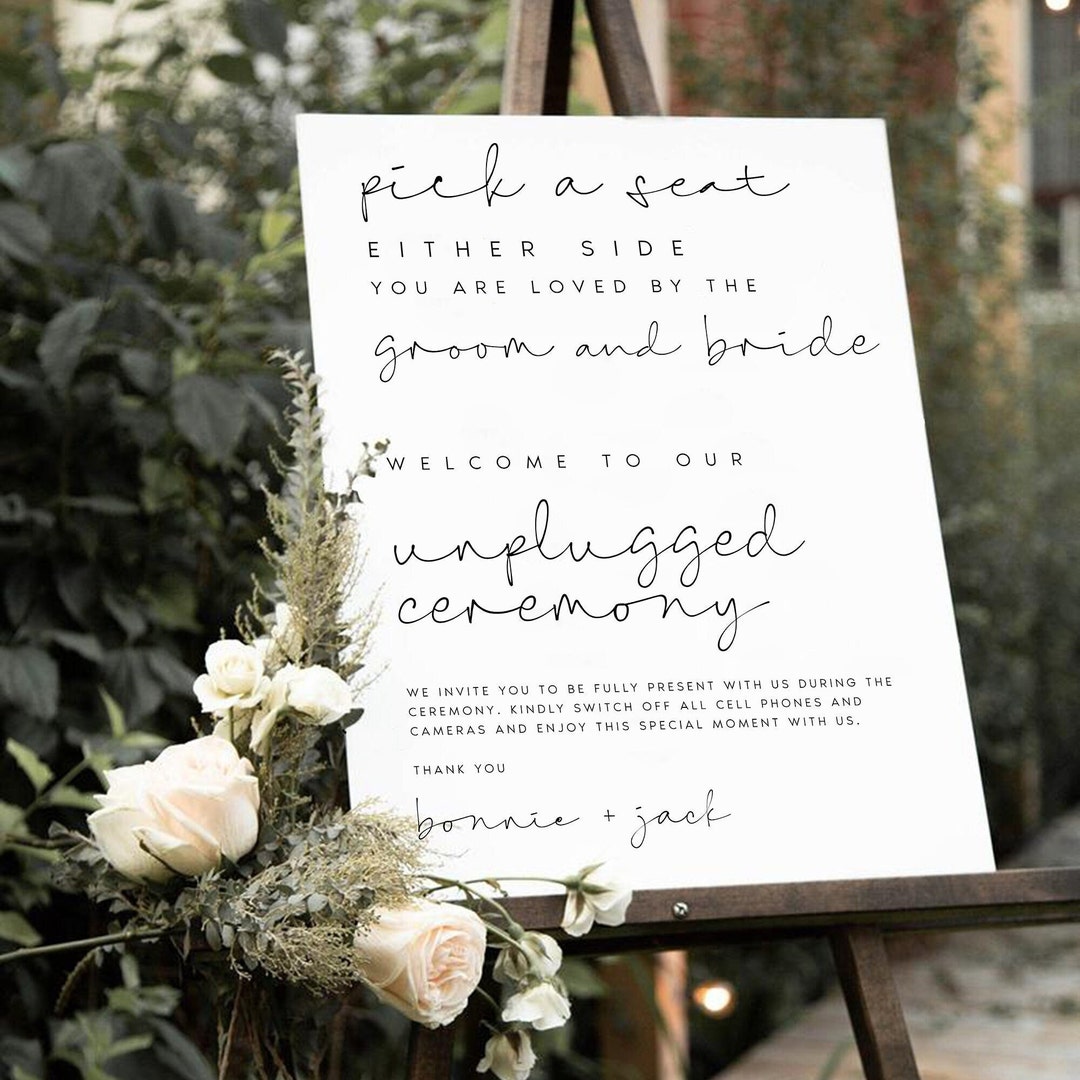 pick a seat
EITHER SIDE
YOU ARE LOVED BY THE
groom and bride
WELCOME TO OUR
unplugged
ceremony
WE INVITE YOU TO BE FULLY PRESENT WITH US DURING THE
CEREMONY. KINDLY SWITCH OFF ALL CELL PHONES AND
CAMERAS AND ENJOY THIS SPECIAL MOMENT WITH US.
THANK YOU
bonnie + jack